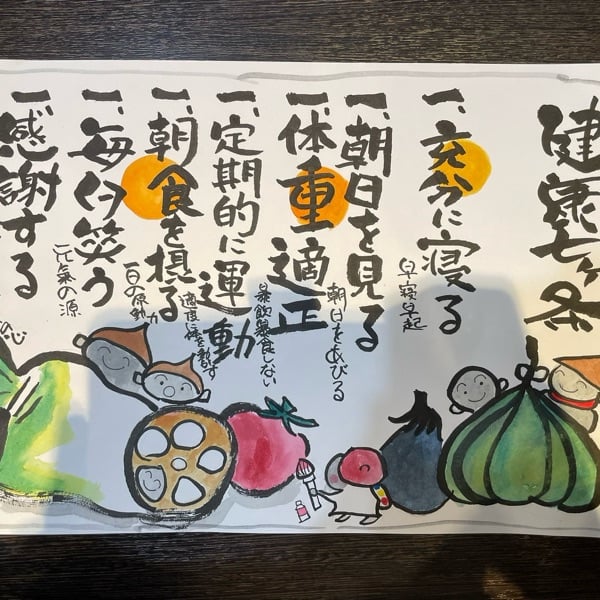 健康七ヶ条
一、充分に寝る
早寝早起
一、朝日を見る
朝日をあびる
一、体重適正
暴飲暴食しない
一、定期的に運動
適度に体を動かす
一、朝食を摂る
一日の原動力
一、毎日笑う
元氣の源
一、感謝する
の心